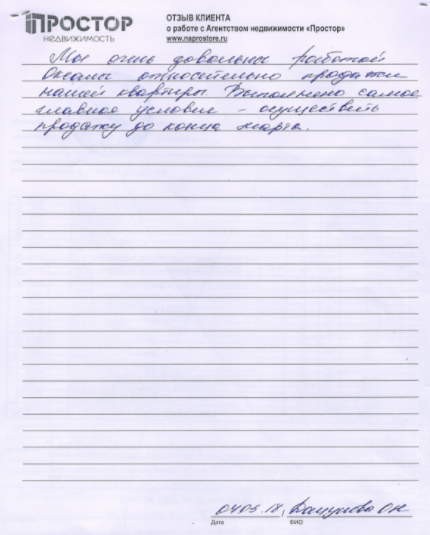 ПРОСТОР
НЕДВИЖИМОСТЬ
ОТЗЫВ КЛИЕНТА
о работе с Агентством недвижимости «Простор»
www.naprostore.ru
Мы очень довольны работой
Оксаны относительно продажи
нашей квартиры. Выполнено самое
главное условие – осуществить
продажу до конца марта.
04.05.18,
Дата
ФИО